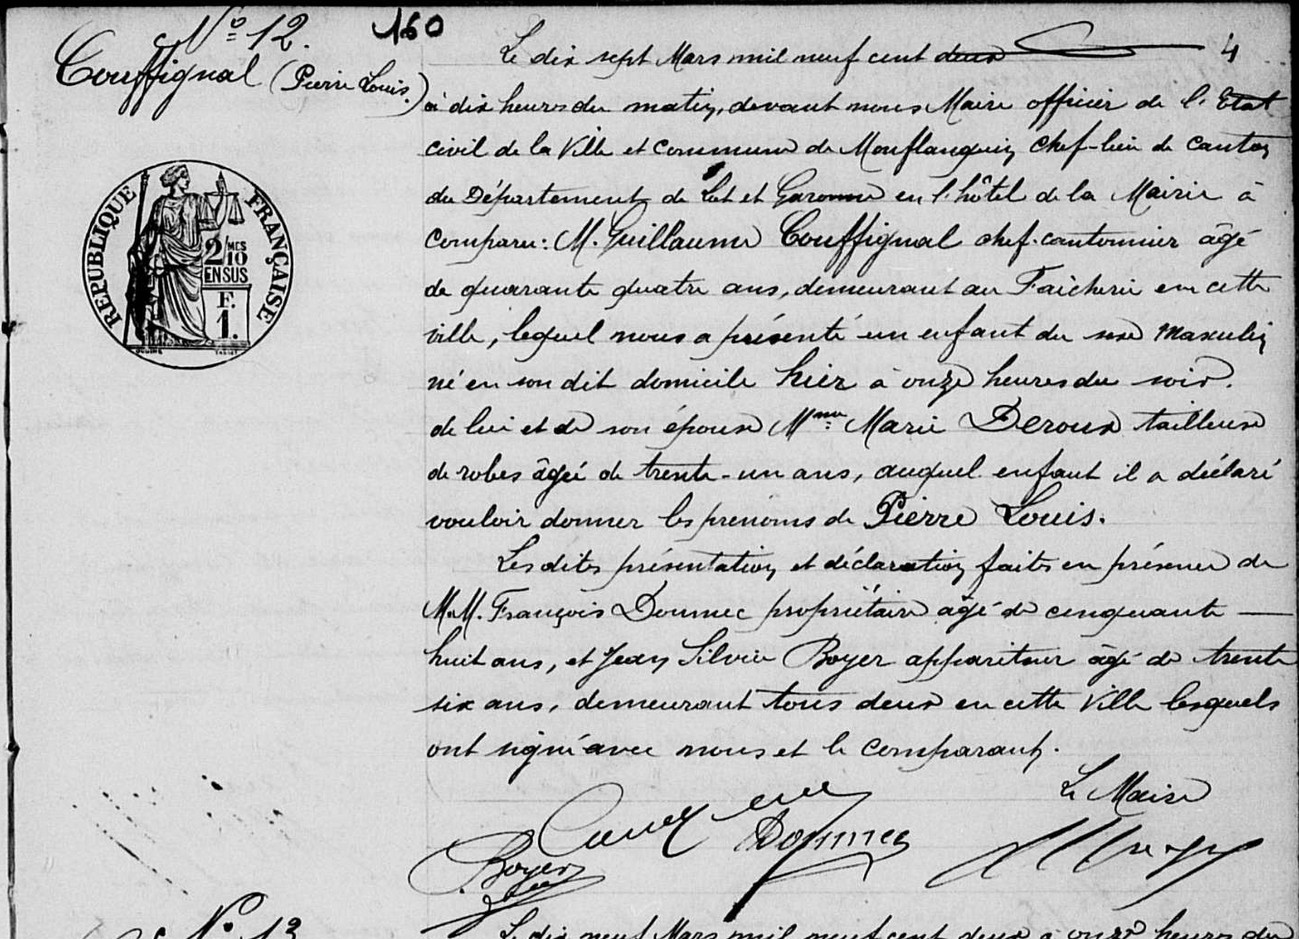 Nº 12.
160
Couffignal (Pierre Louis.)
RÉPUBLIQUE FRANÇAISE
2/10 MES
EN SUS
F.
1.
4
Le dix sept Mars mil neuf cent deux
à dix heures du matin, devant nous Maire officier de l'Etat
civil de la Ville et Commune de Monflanquin chef-lieu de canton
du Département de Lot et Garonne en l'hôtel de la Mairie à
comparu: M. Guillaume Couffignal chef-cantonnier âgé
de quarante quatre ans, demeurant au en cette
ville, lequel nous a présenté un enfant du sexe Masculin
né en son dit domicile hier à onze heures du soir.
de lui et de son épouse Mme Marie Deroux tailleuse
de robes âgée de trente-un ans, auquel enfant il a déclaré
vouloir donner les prenoms de Pierre Louis.
Les dites présentation et déclaration faites en présence de
M.M. François Doumec propriétaire âgé de cinquante
huit ans, et Jean Silvie Boyer appariteur âgé de trente
six ans, demeurant tous deux en cette Ville lesquels
ont signé avec nous et le comparant.
Le Maire
Doumec
Boyer
Nº 13
Le dix neuf Mars mil neuf cent deux à onze heures du